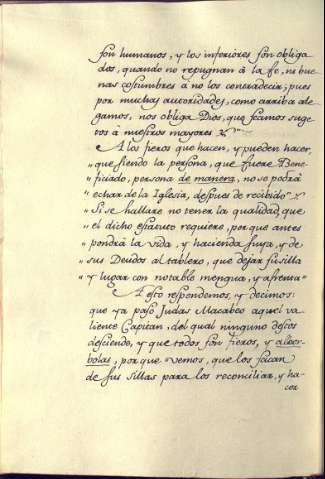 son humanos, y los inferiores son obliga
dos, quando no repugnan à la fe, ni bue
nas costumbres à no los contradecir; pues
por muchas autoridades, como arriba ale
gamos, nos obliga Dios, que seamos suge
tos à nuestros mayores
A los fieros que hacen, y pueden hacer,
" que siendo la persona, que fuere Bene
" ficiado, persona de manera, no se podrà
" echar de la Iglesia, despues de recibido
" Si se hallare no tener la qualidad, que
" el dicho estatuto requiere, porque antes
" pondrà la vida, y hacienda suya, y de
" sus Deudos al tablero, que dejar su silla
" y lugar con notable mengua, y afrenta"
A esto respondemos, y decimos:
que ya pasò Judas Macabeo aquel va
liente Capitan, del qual ninguno destos
desciende, y que todos son fieros, y
bolas, porque vemos, que los sacan
de sus sillas para los reconciliar, y ha
cer